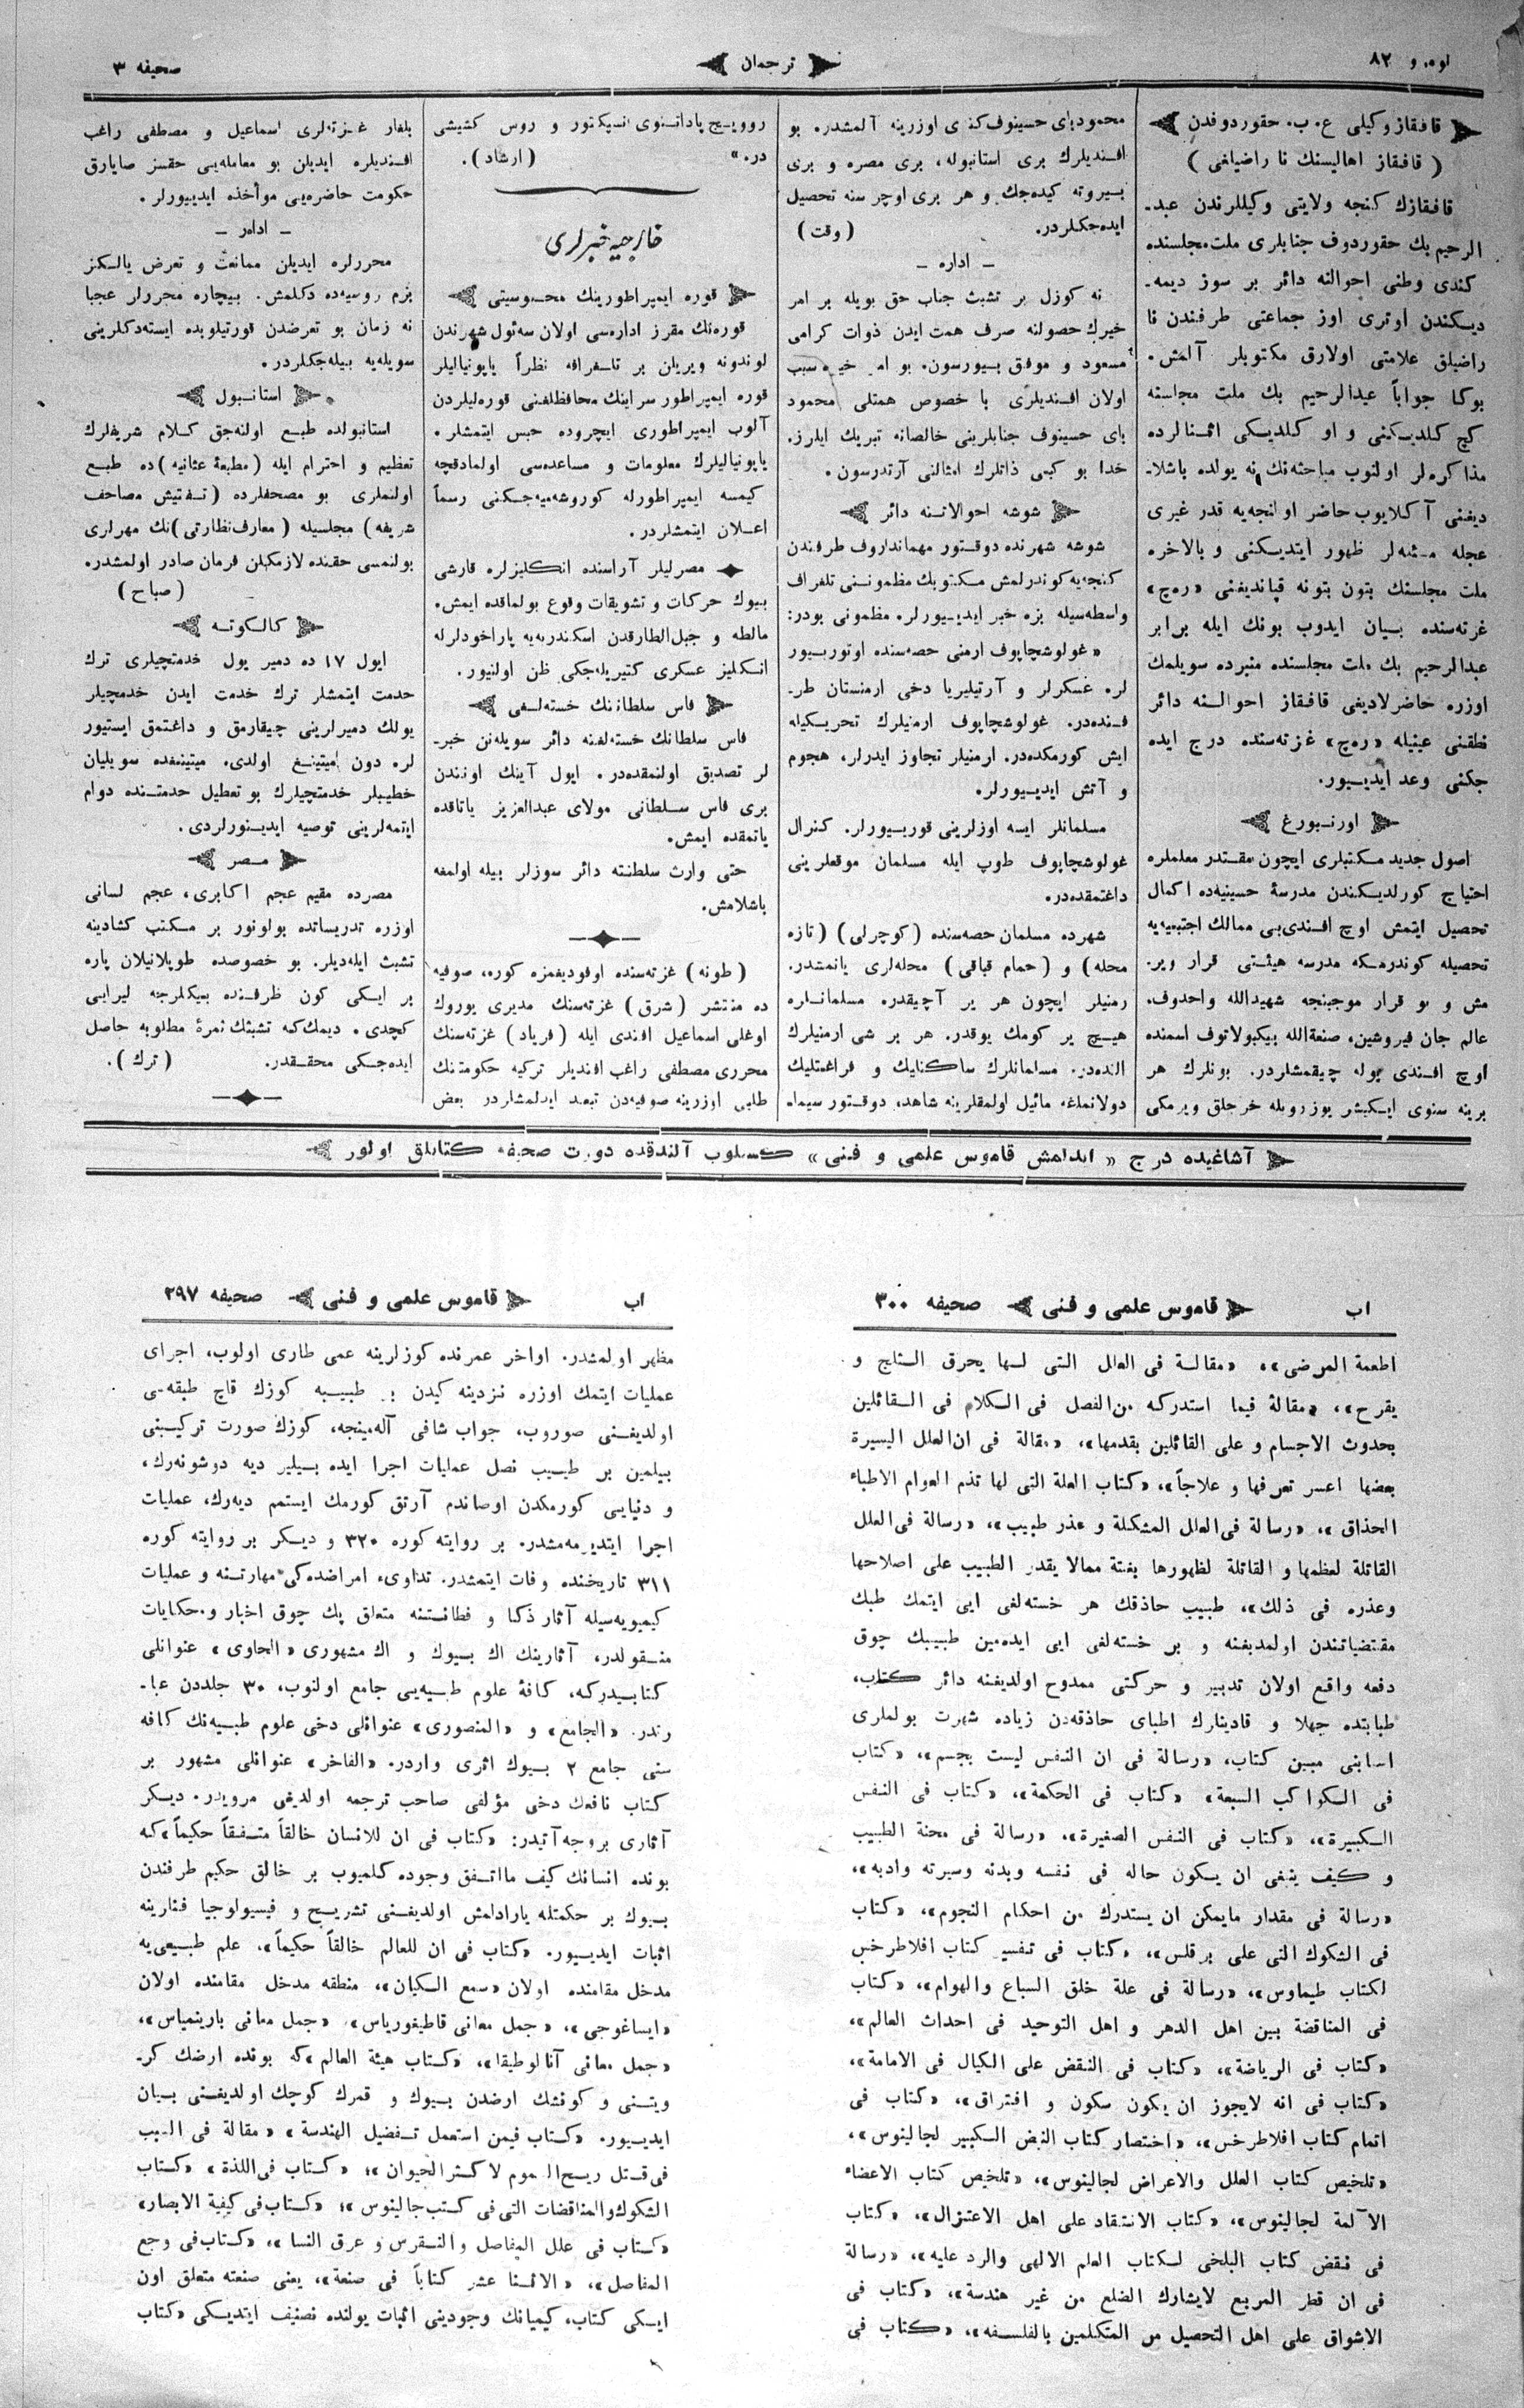 نومرو ٨٢
ترجمان
صحيفه ٣
قافقاز وكيلی ع. ب. حقوردوفدن
( قافقاز اهاليسنك نا راضيلغی )
قافقازك كنجه ولايتی وكيللرندن عبد-
الرحيم بك حقوردوف جنابلری ملت مجلسنده
كندی وطنی احوالنه دائر بر سوز ديمه-
ديكندن اوتری اوز جماعتی طرفندن نا
راضيلق علامتی اولارق مكتوبلر آلمش.
بوكا جواباً عبدالرحيم بك ملت مجلسنه
كچ كلديكنی و او كلديكی اثنالرده
مذاكره لر اولنوب مباحثه نك نه يولده باشلا-
ديغنی آكلايوب حاضر اولنجه يه قدر غيری
عجله مسئه لر ظهور ايتديكنی و بالاخره
ملت مجلسنك بتون بتونه قپانديغنی «رهچ»
غزته سنده بيان ايدوب بونك ايله برابر
عبدالرحيم بك ملت مجلسنده منبرده سويلمك
اوزره حاضرلاديغی قافقاز احوالنه دائر
نطقنی عينيله «رهچ» غزته سنده درج ايده
جكنی وعد ايديیور.
اورنبورغ
اصول جديد مكتبلری ايچون مقتدر معلملره
احتياج كورلديكندن مدرسهٔ حسينيه ده اكمال
تحصيل ايتمش اوچ افندی یی ممالك اجنبيه يه
تحصيله كوندرمكه مدرسه هيئتی قرار وير.
مش و بو قرار موجبنجه شهيدالله واحدوف،
عالم جان فيروشين، صنعةالله بيكبولاتوف اسمنده
اوچ افندی يوله چيقمشلردر. بونلرك هر
برينه سنوی ايكيشر يوز روبله خرجلق ويرمكی
محمودبای حسينوف كندی اوزرينه آلمشدر. بو
افنديلرك بری استانبوله، بری مصره و بری
بيروته كيده جك و هر بری اوچر سنه تحصيل
ايده جكلردر. (وقت)
— اداره —
نه كوزل بر تشبث جناب حق بويله بر امر
خيرك حصولنه صرف همت ايدن ذوات كرامی
مسعود و موفق بيورسون. بو امر خيره سبب
اولان افنديلری با خصوص همتلی محمود
بای حسينوف جنابلرينی خالصانه تبريك ايلرز.
خدا بو كبی ذاتلرك امثالنی آرتدرسون.
شوشه احوالاتنه دائر
شوشه شهرنده دوقتور مهمانداروف طرفندن
كنجه يه كوندرلمش مكتوبك مظمونـنی تلغراف
واسطه سيله بزه خبر ايديیورلر. مظمونی بودر:
«غولوشچاپوف ارمنی حصه سنده اوتوريیور
لره عسكرلر و آرتيليريا دخی ارمنستان طر-
فنده در. غولوشچاپوف ارمنيلرك تحريكيله
ايش كورمكده در. ارمنيلر تجاوز ايدرلر، هجوم
و آتش ايديیورلر.
مسلمانلر ايسه اوزلرينی قوريیورلر. كنرال
غولوشچاپوف طوپ ايله مسلمان موقعلرينی
داغتمقده در.
شهرده مسلمان حصه سنده (كوچرلی) (تازه
محله) و (حمام قباقی) محله لری يانمشدر.
رمنيلر ايچون هر ير آچيقدر. مسلمانلره
هيچ ير كومك يوقدر. هر بر شی ارمنيلرك
النده در. مسلمانلرك ساكنلیك و فراغتليك
دولانملغه مائيل اولمقلرينه شاهد، دوقتور سيما-
روويچ پادانوی انسپكتور و روس كشيشی
در.» (ارشاد).
خارجيه خبرلری
قوره ايمپراطورينك محبوسيتی
قوره نك مقرز اداره سی اولان سه ئول شهرندن
لوندونه ويريلن بر تلغرافه نظراً ياپونياليلر
قوره ايمپراطور سراينك محافظلغنی قوره ليلردن
آلوب ايمپراطوری ايچروده حبس ايتمشلر.
ياپونياليلرك معلومات و مساعده سی اولمادقچه
كيمسه ايمپراطورله كوروشه ميه جكنی رسماً
اعلان ايتمشلردر.
مصرليلر آراسنده انكليزلره قارشی
بيوك حركات و تشويقات وقوع بولماقده ايمش.
مالطه و جبل الطارقدن اسكندريه يه پاراخودلرله
انكليز عسكری كتيريله جكی ظن اولنيور.
فاس سلطاننك خسته لغی
فاس سلطانك خسته لغنه دائر سويله نن خبر-
لر تصديق اولنمقده در. ايول آينك اونندن
بری فاس سلطانی مولای عبدالعزيز ياتاقده
ياتمقده ايمش.
حتی وارث سلطنته دائر سوزلر بيله اولمغه
باشلامش.
(طونه) غزته سنده اوقوديغمزه كوره، صوفيه
ده منتشر (شرق) غزته سنك مديری يوروك
اوغلی اسماعيل افندی ايله (فرياد) غزته سنك
محرری مصطفی راغب افنديلر تركيه حكومتنك
طلبی اوزرينه صوفيه دن تبعيد ايدلمشلردر بعض
بلغار غزته لری اسماعيل و مصطفی راغب
افنديلره ايديلن بو معامله یی حقسز صايارق
حكومت حاضره یی مواخذه ايديیورلر.
— اداره —
محررلره ايديلن ممانعت و تعرض يالكز
بزم روسيه ده دكلمش. بيچاره محررلر عجبا
نه زمان بو تعرضدن قورتيلوبده ايسته دكلرينی
سويله يه بيله جكلردر.
استانبول
استانبولده طبع اولنه جق كلام شريفلرك
تعظيم و احترام ايله (مطبعهٔ عثمانيه) ده طبع
اولنملری بو مصحفلرده (تفتيش مصاحف
شريفه) مجلسيله (معارف نظارتی) نك مهرلری
بولنمسی حقنده لازمكلن فرمان صادر اولمشدر.
(صباح)
كالكوته
ايول ١٧ ده دمير يول خدمتچيلری ترك
خدمت ايتمشلر ترك خدمت ايدن خدمچيلر
يولك دميرلرينی چيقارمق و داغتمق ايستيور
لره دون ميتينغ اولدی. ميتينغده سويليان
خطيبلر خدمتچيلرك بو تعطيل خدمتنده دوام
ايتمه لرينی توصيه ايديیورلردی.
مصر
مصرده مقيم عجم اكابری، عجم لسانی
اوزره تدريساتده بولونور بر مكتب كشادينه
تشبث ايله ديلر. بو خصوصده طوپلانيلان پاره
بر ايكی كون ظرفنده بيكلرجه ليرایی
كچدی. ديمك كه تشبثك ثمرهٔ مطلوبه حاصل
ايده جكی محققدر. (ترك).
آشاغيده درج «ايدلمش قاموس علمی و فنی» كسلوب آلندقده دورت صحيفه كتابلق اولور
اب
قاموس علمی و فنی
صحيفه ٣٠٠
اطعمة المرضی»، «مقالة فی العلل التی لها يحرق الثلج و
يقرح»، «مقالهٔ فيما استدركه من الفصل فی الكلام فی القائلين
بحدوث الاجسام و علی القائلين بقدمها»، «مقالة فی ان العلل اليسيرة
بعضها اعسر تعرفها و علاجاً»، «كتاب العلة التی لها تذم العوام الاطباء
الحذاق»، «رسالة فی العلل المشكلة و عذر طبيب»، «رسالة فی العلل
القاتلة لعظمها و القاتلة لظهورها بغتة ممالا يقدر الطبيب علی اصلاحها
وعذره فی ذلك»، طبيب حاذقك هر خسته لغی ایی ايتمك طبك
مقتضياتندن اولمديغنه و بر خسته لغی ایی ايده مين طبيبك چوق
دفعه واقع اولان تدبير و حركتی ممدوح اولديغنه دائر كتاب،
طبابتده جهلا و قادينلرك اطبای حاذقه دن زياده شهرت بولملری
اسبابنی مبين كتاب، «رسالة فی ان النفس ليست بجسم»، «كتاب
فی الكواكب السبعة» «كتاب فی الحكمة»، «كتاب فی النفس
الكبيرة»، «كتاب فی النفس الصغيرة»، «رسالة فی محنة الطبيب
و كيف ينبغی ان يكون حاله فی نفسه وبدنه وسيرته وادبه»،
«رسالة فی مقدار مايمكن ان يستدرك من احكام النجوم»، «كتاب
فی الشكوك التی علی برقلس»، «كتاب فی تفسير كتاب افلاطرخس
لكتاب طيماوس»، «رسالة فی علة خلق السباع والهوام»، «كتاب
فی المناقضة بين اهل الدهر و اهل التوحيد فی احداث العالم»،
«كتاب فی الرياضة»، «كتاب فی النقض علی الكيال فی الامامة»،
«كتاب فی انه لايجوز ان يكون سكون و افتراق»، «كتاب فی
اتمام كتاب افلاطرخس»، «اختصار كتاب النبض الكبير لجالينوس»،
«تلخيص كتاب العلل والاعراض لجالينوس»، «تلخيص كتاب الاعضاء
الآلمة لجالينوس»، «كتاب الانتقاد علی اهل الاعتزال»، «كتاب
فی نقض كتاب البلخی لكتاب العلم الالهی والرد عليه»، «رسالة
فی ان قطر المربع لايشارك الضلع من غير هندسة»، «كتاب فی
الاشواق علی اهل التحصيل من المتكلمين بالفلسفه»، «كتاب فی
اب
قاموس علمی و فنی
صحيفه ٢٩٧
مظهر اولمشدر. اواخر عمرنده كوزلرينه عمی طاری اولوب، اجرای
عمليات ايتمك اوزره نزدينه كيدن بر طبيبه كوزك قاچ طبقه یی
اولديغنی صوروب، جواب شافی آله مينجه، كوزك صورت تركيبنی
بيلمين بر طبيب نصل عمليات اجرا ايده بيلير ديه دوشونه رك،
و دنيایی كورمكدن اوصاندم آرتق كورمك ايستمم ديه رك، عمليات
اجرا ايتديرمه مشدر. بر روايته كوره ٣٢٠ و ديكر بر روايته كوره
٣١١ تاريخنده وفات ايتمشدر. تداویء امراضده كی مهارتنه و عمليات
كيميويه سيله آثار ذكا و فطانتنه متعلق پك چوق اخبار و حكايات
منقولدر، آثارينك اك بيوك و اك مشهوری «الحاوی» عنوانلی
كتابيدركه، كافهٔ علوم طبيه یی جامع اولنوب، ٣٠ جلددن عبا-
رتدر. «الجامع» و «المنصوری» عنوانلی دخی علوم طبيه نك كافه
سنی جامع ٢ بيوك اثری واردر. «الفاخر» عنوانلی مشهور بر
كتاب نافعك دخی مؤلفی صاحب ترجمه اولديغی مرويدر. ديكر
آثاری بروجه آتيدر: «كتاب فی ان للانسان خالقاً متقناً حكيماً» كه
بونده انسانك كيف مااتفق وجوده كلميوب بر خالق حكيم طرفندن
بيوك بر حكمتله يارادلمش اولديغنی تشريح و فيسيولوجيا فنلرينه
اثبات ايديیور. «كتاب فی ان للعالم خالقاً حكيماً»، علم طبيعی يه
مدخل مقامنده اولان «سمع الكيان»، منطقه مدخل مقامنده اولان
«ايساغوجی»، «جمل معانی قاطيغورياس»، «جمل معانی باريمنياس»،
«جمل معانی آنالوطيقا»، «كتاب هيئة العالم» كه بونده ارضك كر-
ويتنی و كونشك ارضدن بيوك و قمرك كوچك اولديغنی بيان
ايديیور. «كتاب فيمن استعمل تفضيل الهندسة» «مقالة فی السبب
فی قتل ريح السموم لاكثر الحيوان»؛ «كتاب فی اللذة» «كتاب
الشكوك والمناقضات التی فی كتب جالينوس»؛ «كتاب فی كيفية الابصار»
«كتاب فی علل المفاصل والنقرس و عرق النسا»، «كتاب فی وجع
المفاصل»، «الاثنا عشر كتاباً فی صنعة»، يعنی صنعته متعلق اون
ايكی كتاب، كيميانك وجودينی اثبات يولنده تصنيف ايتديكی «كتاب